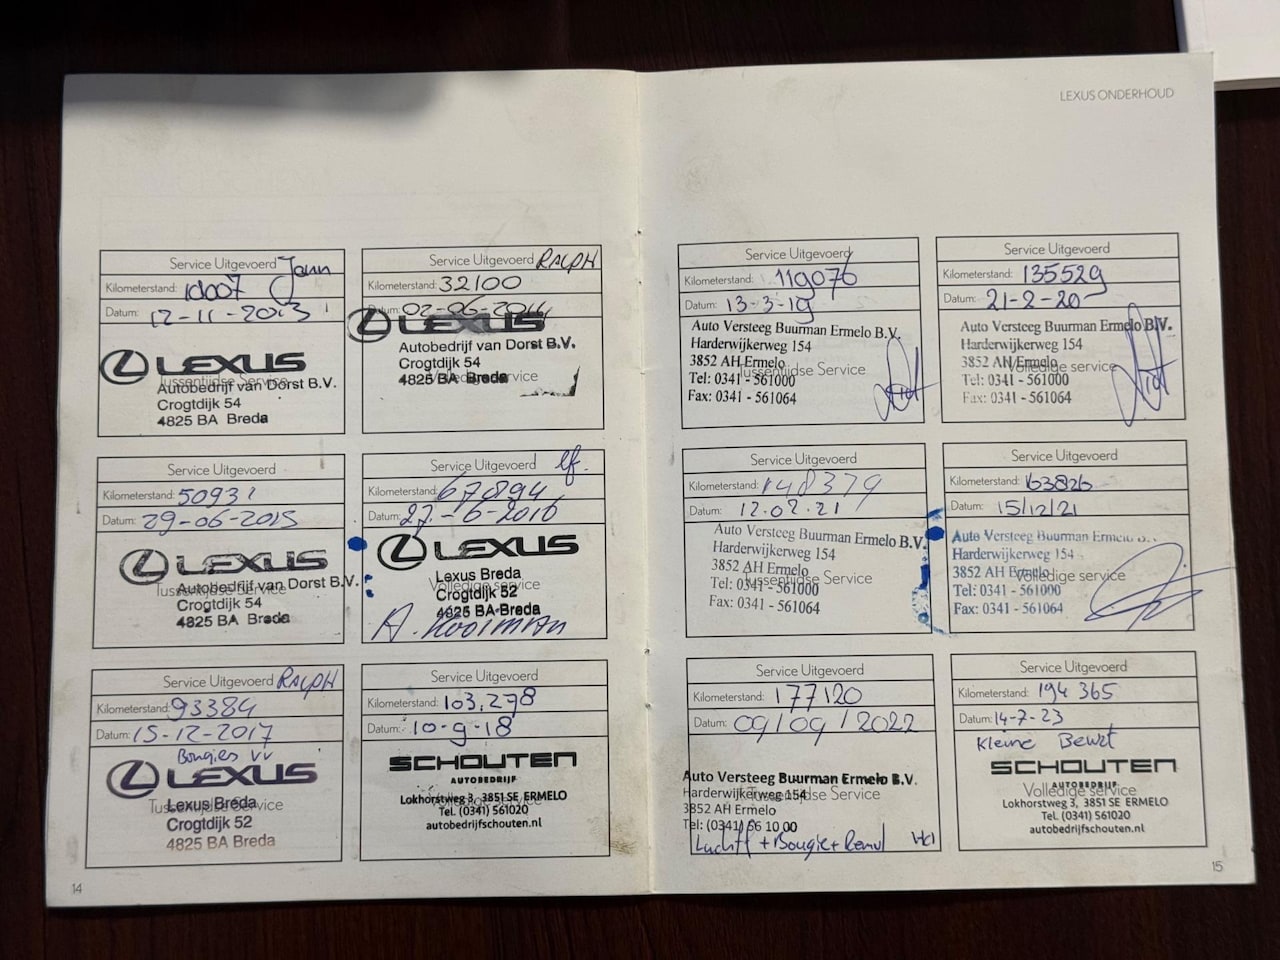 LEXUS ONDERHOUD
Service Uitgevoerd Jann
Kilometerstand: 10007
Datum: 12-11-2013
LEXUS
Tussentijdse Service
Autobedrijf van Dorst B.V.
Crogtdijk 54
4825 BA Breda
Service Uitgevoerd RALPH
Kilometerstand: 32100
Datum: 02-06-2014
LEXUS
Autobedrijf van Dorst B.V.
Crogtdijk 54
Volledige service
4825 BA Breda
Service Uitgevoerd
Kilometerstand: 50931
Datum: 29-06-2015
LEXUS
Autobedrijf van Dorst B.V.
Tussentijdse Service
Crogtdijk 54
4825 BA Breda
Service Uitgevoerd
Kilometerstand:
Datum: 27-6-2016
LEXUS
Lexus Breda
Volledige service
Crogtdijk 52
4825 BA Breda
A. Kooiman
Service Uitgevoerd RALPH
Kilometerstand: 93384
Datum: 15-12-2017
Bougies VV
LEXUS
Lexus Breda
Tussentijdse Service
Crogtdijk 52
4825 BA Breda
Service Uitgevoerd
Kilometerstand: 103,278
Datum: 10-9-18
SCHOUTEN
AUTOBEDRIJF
Lokhorstweg 3, 3851 SE ERMELO
Tel. (0341) 561020
autobedrijfschouten.nl
14
Service Uitgevoerd
Kilometerstand: 119076
Datum: 13-3-19
Auto Versteeg Buurman Ermelo B.V.
Harderwijkerweg 154
3852 AH Ermelo
Tussentijdse Service
Tel: 0341 - 561000
Fax: 0341 - 561064
Service Uitgevoerd
Kilometerstand: 135529
Datum: 21-2-20
Auto Versteeg Buurman Ermelo B.V.
Harderwijkerweg 154
3852 AH Ermelo
Volledige service
Tel: 0341 - 561000
Fax: 0341 - 561064
Service Uitgevoerd
Kilometerstand: 148379
Datum: 12.02.21
Auto Versteeg Buurman Ermelo B.V.
Harderwijkerweg 154
3852 AH Ermelo
Tussentijdse Service
Tel: 0341 - 561000
Fax: 0341 - 561064
Service Uitgevoerd
Kilometerstand: 163826
Datum: 15/12/21
Auto Versteeg Buurman Ermelo B.V.
Harderwijkerweg 154
3852 AH Ermelo
Volledige service
Tel: 0341 - 561000
Fax: 0341 - 561064
Service Uitgevoerd
Kilometerstand: 177120
Datum: 09/09/2022
Auto Versteeg Buurman Ermelo B.V.
Harderwijkerweg 154
Tussentijdse Service
3852 AH Ermelo
Tel: (0341) 56 10 00
Luchtf + Bougie + Remvl
Service Uitgevoerd
Kilometerstand: 194 365
Datum: 14-7-23
Kleine Beurt
SCHOUTEN
AUTOBEDRIJF
Volledige service
Lokhorstweg 3, 3851 SE ERMELO
Tel. (0341) 561020
autobedrijfschouten.nl
15